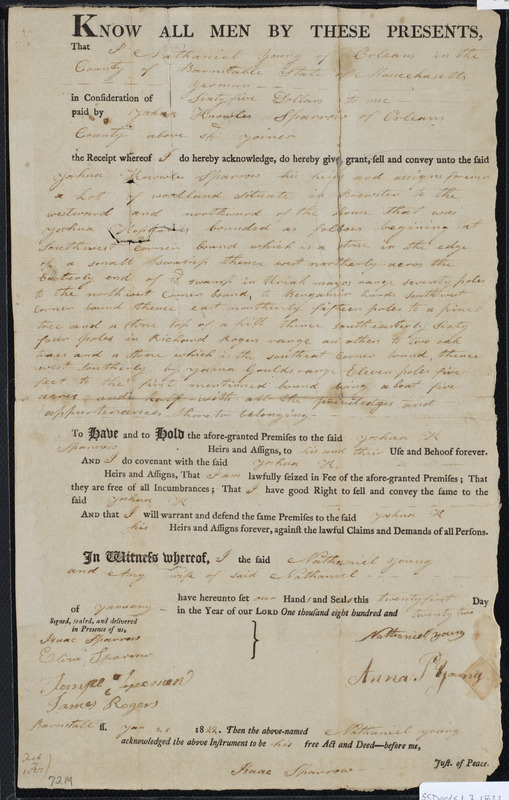 KNOW ALL MEN BY THESE PRESENTS,
That I Nathaniel Young of Orleans in the
County of Barnstable State of Massechusetts
yeoman
in Consideration of Sixty five Dollars to me
paid by Joshua Knowles Sparrow of Orleans
County above sd joiner
the Receipt whereof I do hereby acknowledge, do hereby give, grant, sell and convey unto the said
Joshua Knowles Sparrow his heirs and assigns forever
a Lot of woodland situate in Brewster to the
westward and northward of the House that was
Joshua bounded as follows begining at
Southwest Corner bound which is a stone in the edge
of a small swamp thence west northerly across the
Easterly end of sd swamp in Uriah mayos range seventy poles
to the northwest Corner bound, to Bengamin hinds southwest
Corner bound thence east northerly by fifteen poles to a pine
tree and a stone top of a hill thence southeasterly sixty
four poles in Richard Rogers range an other to two oak
trees and a stone which is the southeast Corner bound, thence
west Southerly by Joshua Goulds range Eleven poles five
feet to the first mentioned bound being about five
acres and half with all the priviledges and
appurtenances thereto belonging
To Have and to Hold the afore-granted Premises to the said Joshua K
Sparrow Heirs and Assigns, to his and their Use and Behoof forever.
AND I do covenant with the said Joshua K.
Heirs and Assigns, That I am lawfully seized in Fee of the afore-granted Premises; That
they are free of all Incumbrances; That I have good Right to sell and convey the same to the
said Joshua K
AND that I will warrant and defend the same Premises to the said Joshua K
his Heirs and Assigns forever, against the lawful Claims and Demands of all Persons.
In Witness whereof, I the said Nathaniel Young
and Amy wife of said Nathaniel
have hereunto set our Hand and Seal this twenty first Day
of January in the Year of our LORD One thousand eight hundred and twenty two
Signed, sealed, and delivered
in Presence of us,
Isaac Sparrow
Sparrow
James Rogers
Nathaniel Young
Anna P Young
Barnstable ss. Jan 21 1822. Then the above-named Nathaniel Young
acknowledged the above Instrument to be his free Act and Deed—before me,
Just. of Peace.
Isaac Sparrow
72M